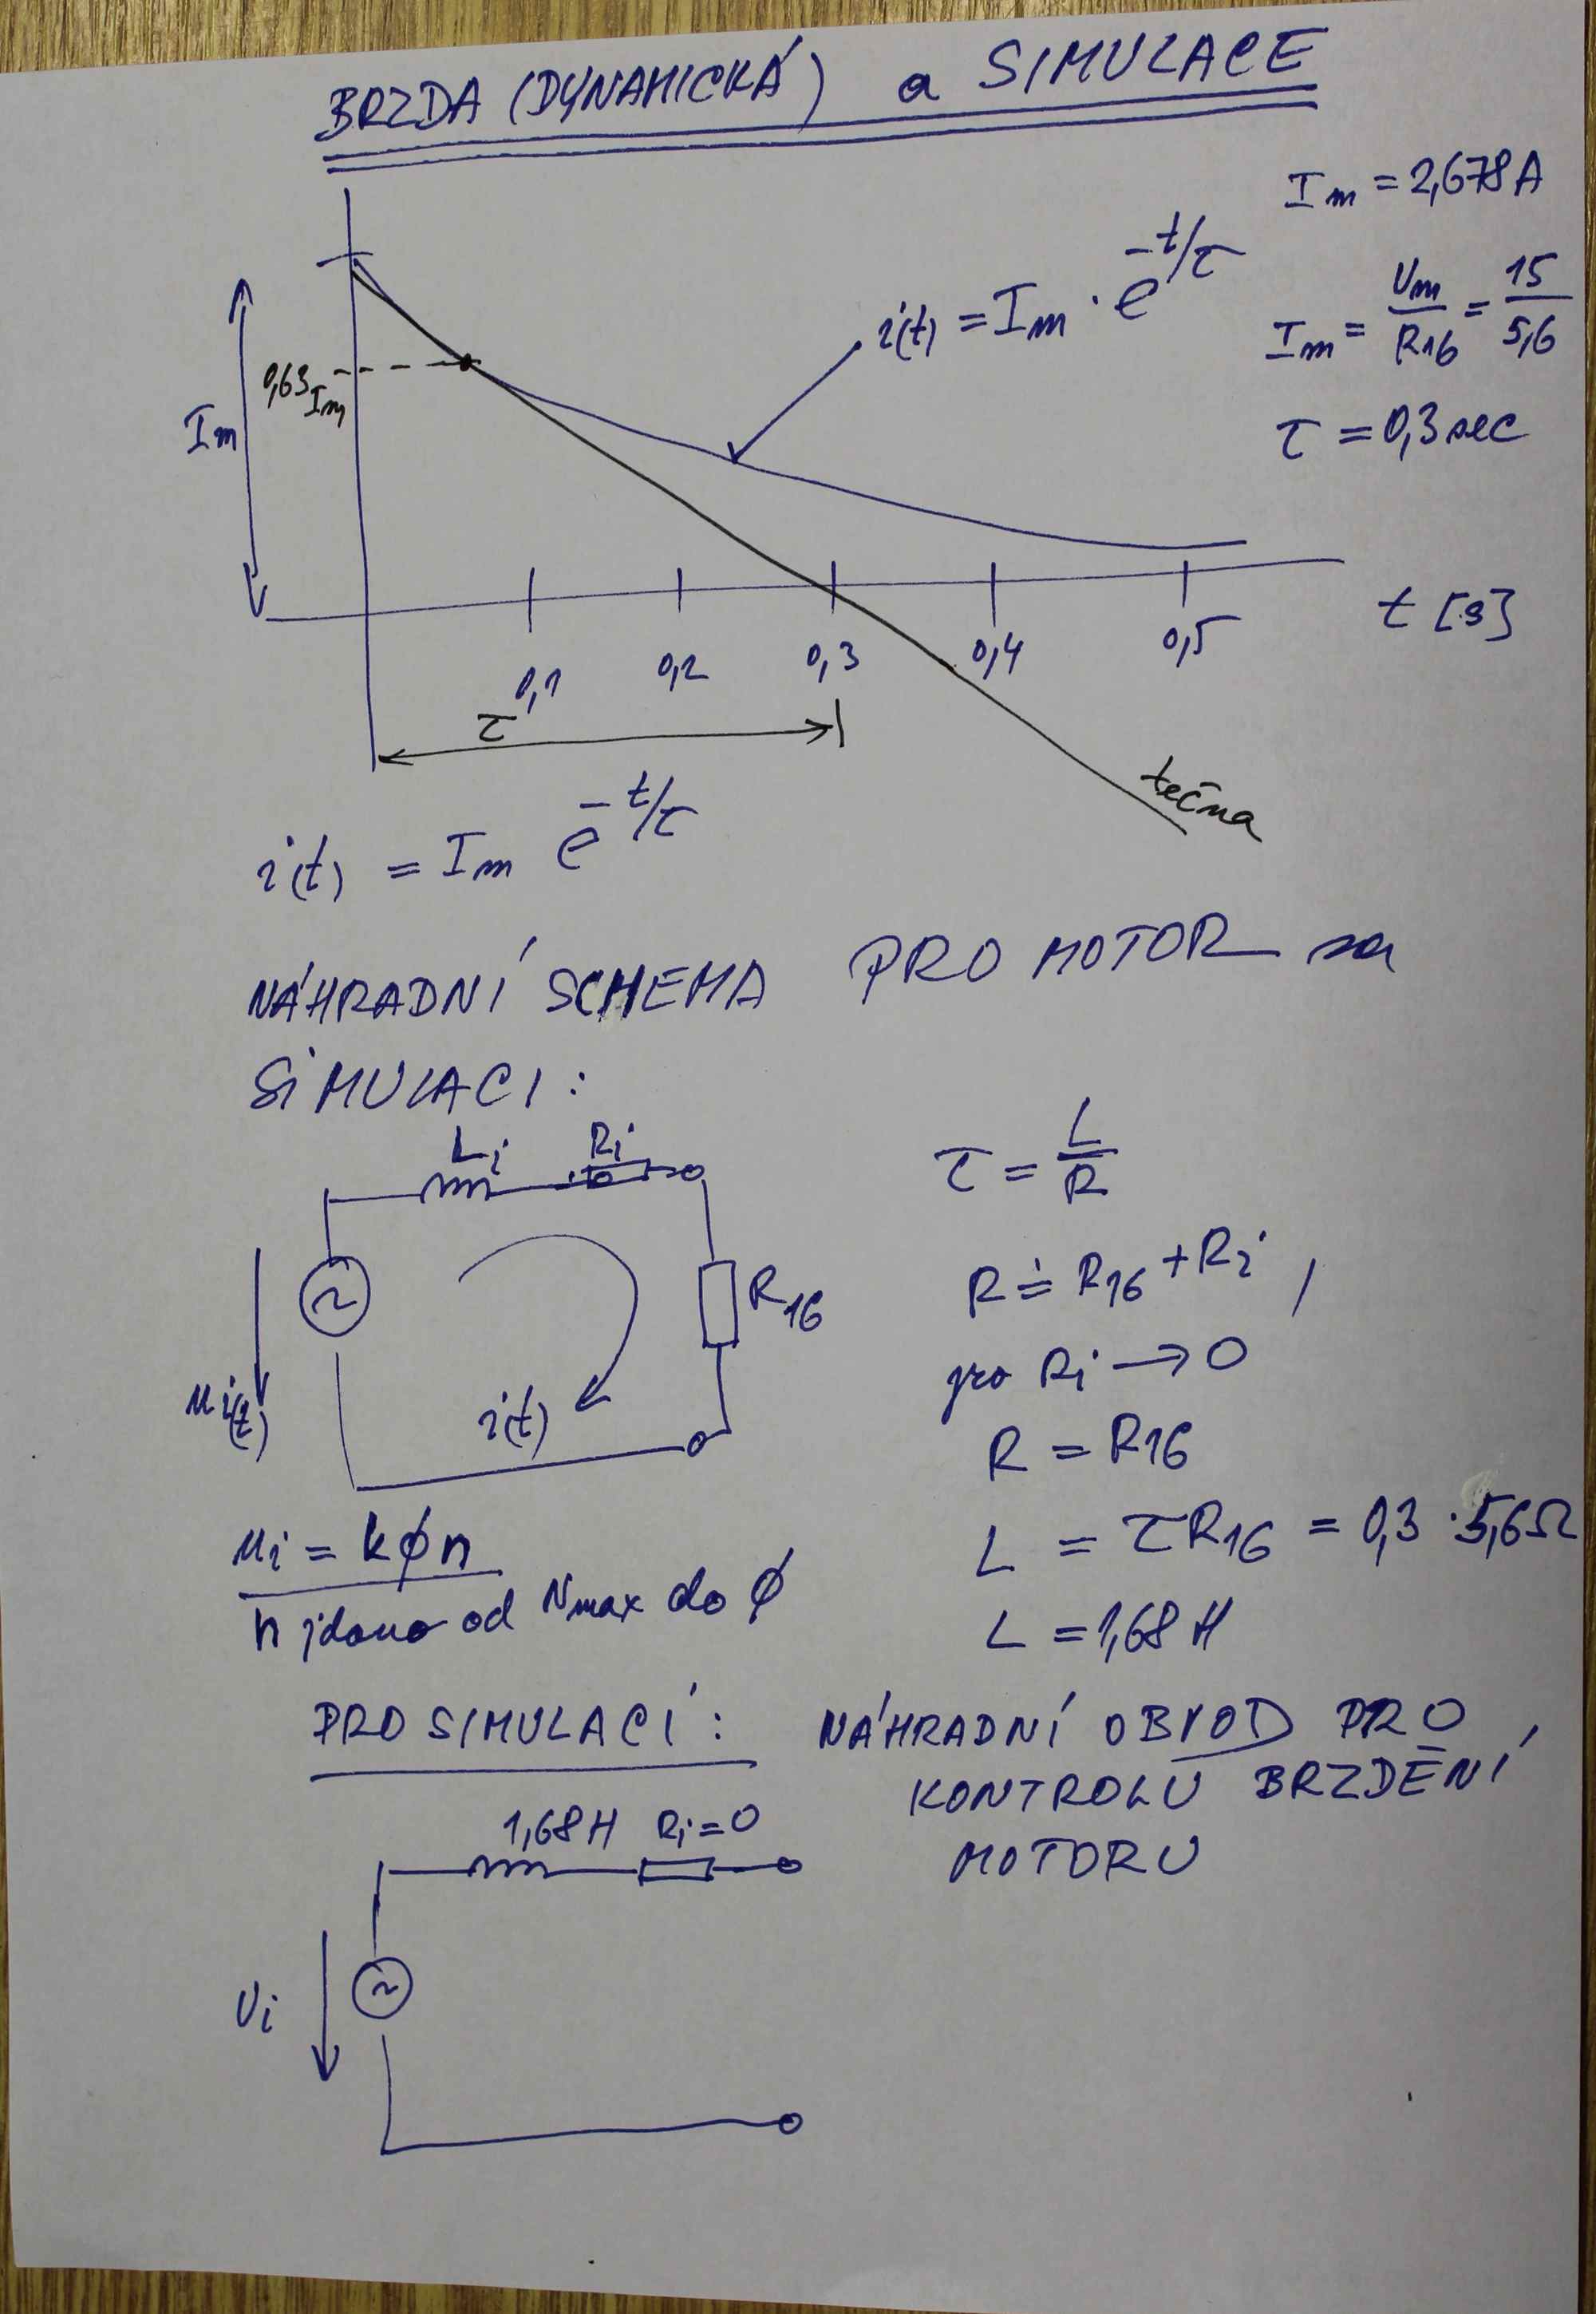 BRZDA (DYNAMICKÁ) a SIMULACE
Im = 2,678A
i(t) = Im · e^-t/τ
Im = Um/R16 = 15/5,6
τ = 0,3 sec
0,63 Im
Im
0,1 0,2 0,3 0,4 0,5 t [s]
τ
tečna
i(t) = Im e^-t/τ
NÁHRADNÍ SCHEMA PRO MOTOR
SIMULACI:
Li Ri
R16
ui(t)
i(t)
τ = L/R
R ≐ R16 + Ri,
pro Ri → 0
R = R16
L = τR16 = 0,3 · 5,6Ω
L = 1,68 H
ui = kϕn
n jdouc od Nmax do ϕ
PRO SIMULACÍ: NÁHRADNÍ OBVOD PRO
KONTROLU BRZDĚNÍ
MOTORU
1,68H Ri=0
Ui